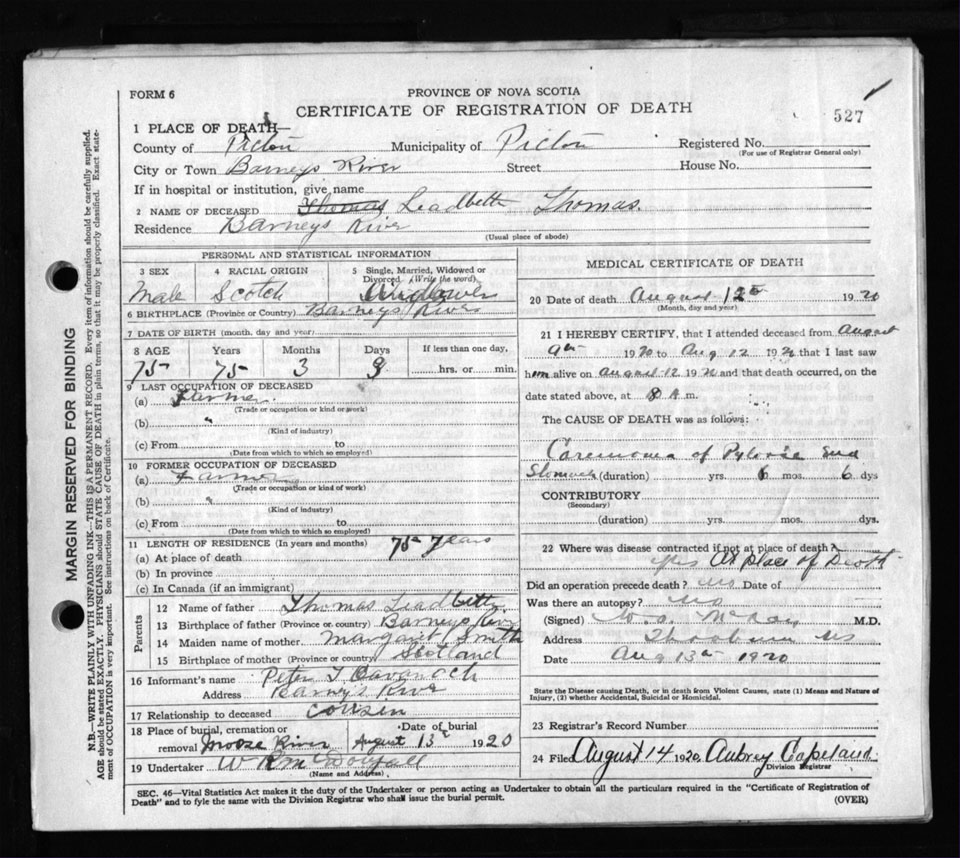 FORM 6
PROVINCE OF NOVA SCOTIA
CERTIFICATE OF REGISTRATION OF DEATH
527
1 PLACE OF DEATH—
County of Pictou Municipality of Pictou Registered No.
(For use of Registrar General only)
City or Town Barneys River Street House No.
If in hospital or institution, give name
2 NAME OF DECEASED Thomas Leadbetter Thomas.
Residence Barneys River
(Usual place of abode)
PERSONAL AND STATISTICAL INFORMATION
3 SEX 4 RACIAL ORIGIN 5 Single, Married, Widowed or Divorced (Write the word)
Male Scotch Widower
6 BIRTHPLACE (Province or Country) Barneys River
7 DATE OF BIRTH (month, day and year)
8 AGE Years Months Days If less than one day,
75 75 3 hrs. or min.
9 LAST OCCUPATION OF DECEASED
(a) Farmer
(Trade or occupation or kind of work)
(b) "
(Kind of industry)
(c) From to
(Date from which to which so employed)
10 FORMER OCCUPATION OF DECEASED
(a) Farmer
(Trade or occupation or kind of work)
(b) "
(Kind of industry)
(c) From to
(Date from which to which so employed)
11 LENGTH OF RESIDENCE (In years and months) 75 Years
(a) At place of death
(b) In province
(c) In Canada (if an immigrant)
Parents
12 Name of father Thomas Leadbetter
13 Birthplace of father (Province or country) Barneys River
14 Maiden name of mother Margaret Smith
15 Birthplace of mother (Province or country) Scotland
16 Informant's name Peter J Cavanoch
Address Barney's River
17 Relationship to deceased cousen
18 Place of burial, cremation or removal Moose River Date of burial August 13 1920
19 Undertaker W R McDougall
(Name and Address)
MEDICAL CERTIFICATE OF DEATH
20 Date of death August 12th 1920
(Month, day and year)
21 I HEREBY CERTIFY, that I attended deceased from August
9th 1920 to Aug 12 1920 that I last saw
him alive on August 12 1920 and that death occurred, on the
date stated above, at 8 A m.
The CAUSE OF DEATH was as follows:
Carcinoma of Pyloric End
Stomach (duration) yrs. 6 mos. 6 dys
CONTRIBUTORY
(Secondary)
(duration) yrs. mos. dys.
22 Where was disease contracted if not at place of death?
yes At place of Death
Did an operation precede death? no Date of
Was there an autopsy? no
(Signed) McKay M.D.
Address Thorburn NS
Date Aug 13th 1920
State the Disease causing Death, or in death from Violent Causes, state (1) Means and Nature of
Injury, (2) whether Accidental, Suicidal or Homicidal.
23 Registrar's Record Number
24 Filed August 14 1920 Aubrey Copeland
Division Registrar
SEC. 46—Vital Statistics Act makes it the duty of the Undertaker or person acting as Undertaker to obtain all the particulars required in the "Certificate of Registration of
Death" and to fyle the same with the Division Registrar who shall issue the burial permit.
(OVER)
MARGIN RESERVED FOR BINDING
N.B.—WRITE PLAINLY WITH UNFADING INK—THIS IS A PERMANENT RECORD. Every item of information should be carefully supplied.
AGE should be stated EXACTLY. PHYSICIANS should STATE CAUSE OF DEATH in plain terms, so that it may be properly classified. Exact state-
ment of OCCUPATION is very important. See instructions on back of Certificate.